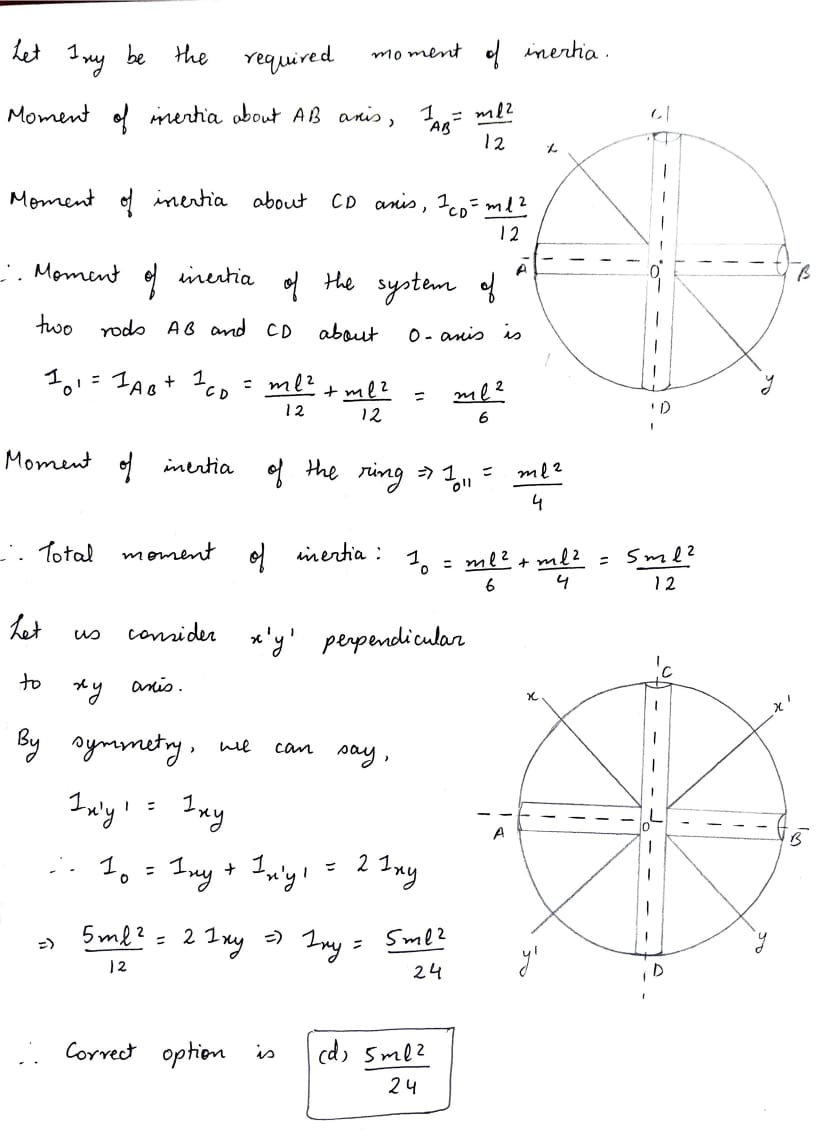 Let Ixy be the required moment of inertia.
Moment of inertia about AB axis, I_AB = ml²/12
Moment of inertia about CD axis, I_CD = ml²/12
∴ Moment of inertia of the system of
two rods AB and CD about O-axis is
I_O' = I_AB + I_CD = ml²/12 + ml²/12 = ml²/6
Moment of inertia of the ring ⇒ I_O'' = ml²/4
∴ Total moment of inertia: I_O = ml²/6 + ml²/4 = 5ml²/12
Let us consider x'y' perpendicular
to xy axis.
By symmetry, we can say,
Ix'y' = Ixy
∴ I_O = Ixy + Ix'y' = 2 Ixy
⇒ 5ml²/12 = 2 Ixy ⇒ Ixy = 5ml²/24
∴ Correct option is (d) 5ml²/24
x
A
O
B
D
y
C
x
x'
A
O
B
y'
D
y